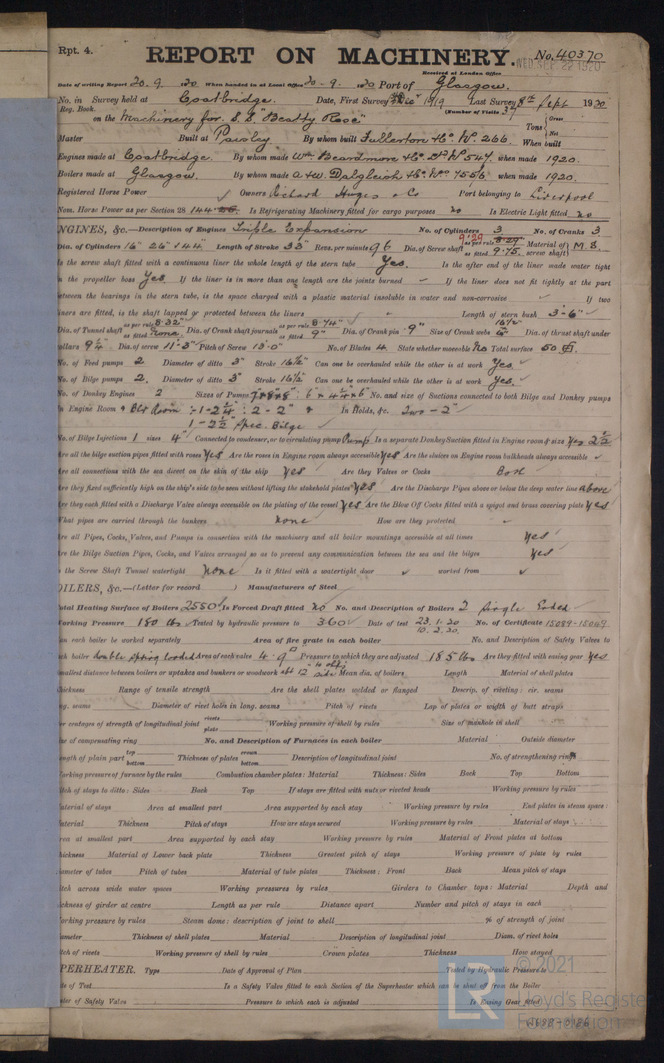 Rpt. 4.
REPORT ON MACHINERY.
No. 40370
Received at London Office
WED. SEP. 22 1920
Date of writing Report 20.9. 1920 When handed in at Local Office 20-9. 1920 Port of Glasgow.
No. in Survey held at Coatbridge. Date, First Survey 1919 Last Survey 8th Sept 1920
Reg. Book. (Number of Visits 37)
on the Machinery for S.S "Beatty Rose" Tons Gross Net
Master Built at Paisley By whom built Fullerton & Co. No. 266. When built
Engines made at Coatbridge. By whom made Wm. Beardmore & Co. Ld No 547. when made 1920.
Boilers made at Glasgow. By whom made A & W. Dalgleish when made 1920.
Registered Horse Power Owners Richard Hughes & Co Port belonging to Liverpool
Nom. Horse Power as per Section 28 144 Is Refrigerating Machinery fitted for cargo purposes no Is Electric Light fitted no
ENGINES, &c.—Description of Engines Triple Expansion No. of Cylinders 3 No. of Cranks 3
Dia. of Cylinders 16" 26" & 44" Length of Stroke 33" Revs. per minute 96 Dia. of Screw shaft as per rule 8.29 9.29 as fitted 9.75. Material of screw shaft M S.
Is the screw shaft fitted with a continuous liner the whole length of the stern tube Yes. Is the after end of the liner made water tight
in the propeller boss Yes. If the liner is in more than one length are the joints burned If the liner does not fit tightly at the part
between the bearings in the stern tube, is the space charged with a plastic material insoluble in water and non-corrosive If two
liners are fitted, is the shaft lapped or protected between the liners Length of stern bush 3'-6"
Dia. of Tunnel shaft as per rule 8.32" as fitted none Dia. of Crank shaft journals as per rule 8.74" as fitted 9" Dia. of Crank pin 9" Size of Crank webs 16½" Dia. of thrust shaft under
collars 9¼ Dia. of screw 11'-3" Pitch of Screw 13'.0" No. of Blades 4 State whether moveable No Total surface 50
No. of Feed pumps 2 Diameter of ditto 3" Stroke 16½" Can one be overhauled while the other is at work Yes.
No. of Bilge pumps 2. Diameter of ditto 3" Stroke 16½" Can one be overhauled while the other is at work Yes.
No. of Donkey Engines 2 Sizes of Pumps No. and size of Suctions connected to both Bilge and Donkey pumps
In Engine Room & Blr Room :- 1-2¼ : 2-2" In Holds, &c. Two - 2"
1-2½" Spec. Bilge
No. of Bilge Injections 1 sizes 4" Connected to condenser, or to circulating pump Pump Is a separate Donkey Suction fitted in Engine room & size Yes 2½
Are all the bilge suction pipes fitted with roses Yes Are the roses in Engine room always accessible Yes Are the sluices on Engine room bulkheads always accessible
Are all connections with the sea direct on the skin of the ship Yes Are they Valves or Cocks Both
Are they fixed sufficiently high on the ship's side to be seen without lifting the stokehold plates Yes Are the Discharge Pipes above or below the deep water line above
Are they each fitted with a Discharge Valve always accessible on the plating of the vessel Yes Are the Blow Off Cocks fitted with a spigot and brass covering plate Yes
What pipes are carried through the bunkers none How are they protected
Are all Pipes, Cocks, Valves, and Pumps in connection with the machinery and all boiler mountings accessible at all times Yes
Are the Bilge Suction Pipes, Cocks, and Valves arranged so as to prevent any communication between the sea and the bilges Yes
Is the Screw Shaft Tunnel watertight None Is it fitted with a watertight door worked from
BOILERS, &c.—(Letter for record ) Manufacturers of Steel
Total Heating Surface of Boilers 2550 Is Forced Draft fitted no No. and Description of Boilers 2 Single Ended
Working Pressure 180 lbs Tested by hydraulic pressure to 360 Date of test 23.1.20 10.2.20 No. of Certificate 15089-15069
Can each boiler be worked separately Area of fire grate in each boiler No. and Description of Safety Valves to
each boiler double spring loaded Area of each valve 4.9 Pressure to which they are adjusted 185 lbs Are they fitted with easing gear Yes
Smallest distance between boilers or uptakes and bunkers or woodwork Mean dia. of boilers Length Material of shell plates
Thickness Range of tensile strength Are the shell plates welded or flanged Descrip. of riveting: cir. seams
long. seams Diameter of rivet holes in long. seams Pitch of rivets Lap of plates or width of butt straps
Per centages of strength of longitudinal joint rivets plate Working pressure of shell by rules Size of manhole in shell
Size of compensating ring No. and Description of Furnaces in each boiler Material Outside diameter
Length of plain part top bottom Thickness of plates crown bottom Description of longitudinal joint No. of strengthening rings
Working pressure of furnace by the rules Combustion chamber plates: Material Thickness: Sides Back Top Bottom
Pitch of stays to ditto: Sides Back Top If stays are fitted with nuts or riveted heads Working pressure by rules
Material of stays Area at smallest part Area supported by each stay Working pressure by rules End plates in steam space:
Material Thickness Pitch of stays How are stays secured Working pressure by rules Material of stays
Area at smallest part Area supported by each stay Working pressure by rules Material of Front plates at bottom
Thickness Material of Lower back plate Thickness Greatest pitch of stays Working pressure of plate by rules
Diameter of tubes Pitch of tubes Material of tube plates Thickness: Front Back Mean pitch of stays
Pitch across wide water spaces Working pressures by rules Girders to Chamber tops: Material Depth and
thickness of girder at centre Length as per rule Distance apart Number and pitch of stays in each
Working pressure by rules Steam dome: description of joint to shell % of strength of joint
Diameter Thickness of shell plates Material Description of longitudinal joint Diam. of rivet holes
Pitch of rivets Working pressure of shell by rules Crown plates Thickness How stayed
SUPERHEATER. Type Date of Approval of Plan Tested by Hydraulic Pressure to
Date of Test Is a Safety Valve fitted to each Section of the Superheater which can be shut off from the Boiler
Diameter of Safety Valve Pressure to which each is adjusted Is Easing Gear fitted
© 2021
LR
Lloyd's Register
Foundation